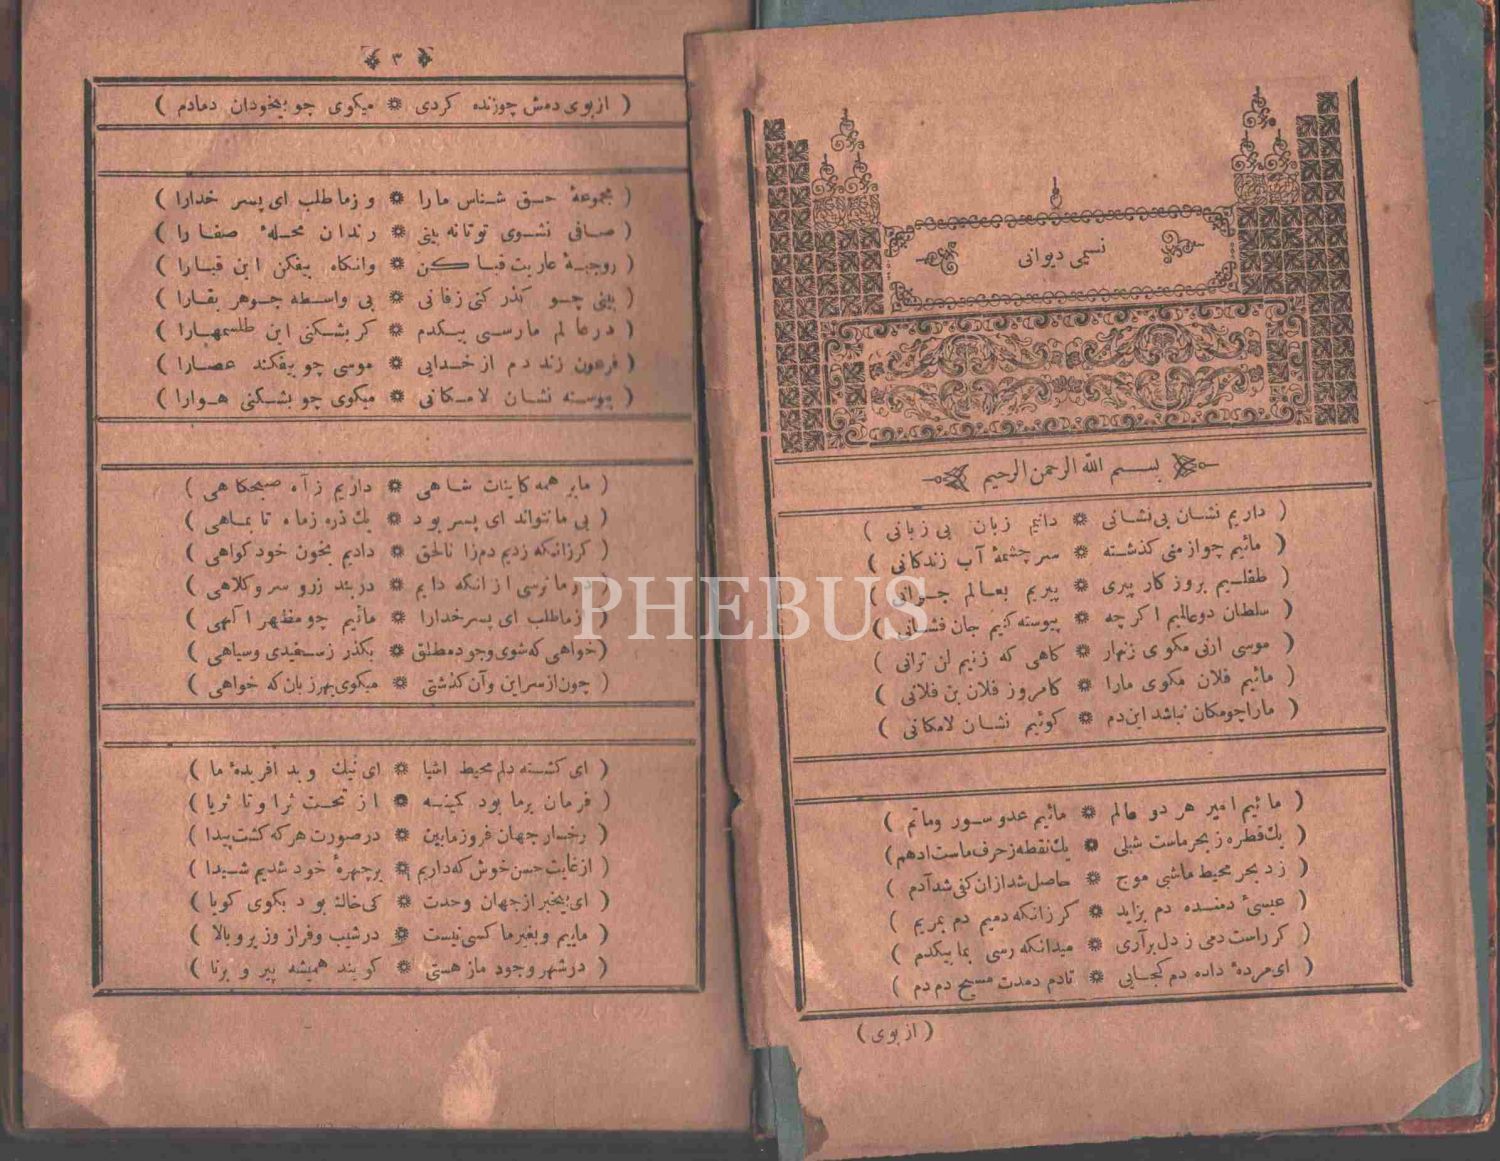 نسیمی دیوانی
بسم الله الرحمن الرحیم
( داریم نشان بی نشانی ❋ دانیم زبان بی زبانی )
( مائیم چو از منی کذشته ❋ سر چشمهٔ آب زندکانی )
( طفلیم بروز کار پیری ❋ پیریم بعالم جوانی )
( سلطان دو عالمیم اکر چه ❋ پیوسته کنیم جان فشانی )
( موسی ارنی مکوی زنهار ❋ کاهی که زنیم لن ترانی )
( مائیم فلان مکوی مارا ❋ کامروز فلان بن فلانی )
( مارا چو مکان نباشد این دم ❋ کوئیم نشان لامکانی )
( مائیم امیر هر دو عالم ❋ مائیم عدو سور وماتم )
( یك قطره ز بحر ماست شبلی ❋ یك نقطه ز حرف ماست ادهم )
( زد بحر محیط ماشی موج ❋ حاصل شد ازان کفی شد آدم )
( عیسیٔ دمنده دم بزاید ❋ کر زانکه دمیم دم بمریم )
( کر راست دمی ز دل برآری ❋ میدانکه رسی بما بیکدم )
( ای مردهٔ داده دم کجایی ❋ تادم دمدت مسیح دم دم )
( از بوی )
PHEBUS
٣
( از بوی دمش چو زنده کردی ❋ میکوی چو بیخودان دمادم )
( مجموعهٔ حق شناس مارا ❋ و زما طلب ای پسر خدارا )
( صافی نشوی تو تا نه بینی ❋ رندان محلهٔ صفا را )
( رو جبهٔ عاریت قبا کن ❋ وانکاه بیفکن این قبارا )
( بینی چو کذر کنی زفانی ❋ بی واسطه جوهر بقارا )
( در عالم ما رسی بیکدم ❋ کر بشکنی این طلسمهارا )
( فرعون زند دم از خدایی ❋ موسی چو بیفکند عصارا )
( پیوسته نشان لامکانی ❋ میکوی چو بشکنی هوارا )
( مابر همه کاینات شاهی ❋ داریم ز آه صبحکاهی )
( بی ما نتواند ای پسر بود ❋ یك ذره زماه تا بماهی )
( کر زانکه زدیم دم زا نالحق ❋ دادیم بخون خود کواهی )
( ما نرسی از انکه دایم ❋ در بند زرو سر وکلاهی )
( زما طلب ای پسر خدارا ❋ مائیم چو مظهر آلهی )
( خواهی که شوی وجود مطلق ❋ بکذر ز سفیدی وسیاهی )
( چون از سر این وآن کذشتی ❋ میکوی بهر زبان که خواهی )
( ای کشته دلم محیط اشیا ❋ ای نیك وبد افریدهٔ ما )
( فرمان برما بود کمینه ❋ از تحت ثرا وتا ثریا )
( رخسار جهان فروز مابین ❋ در صورت هر که کشت پیدا )
( از غایت حسن خوش که داریم ❋ بر چهرهٔ خود شدیم شیدا )
( ای بیخبر از جهان وحدت ❋ کی خالهٔ بود بکوی کویا )
( ماییم وبغیر ما کسی نیست ❋ در شیب وفراز وزیر وبالا )
( در شهر وجود ماز هستی ❋ کویند همیشه پیر وبرنا )